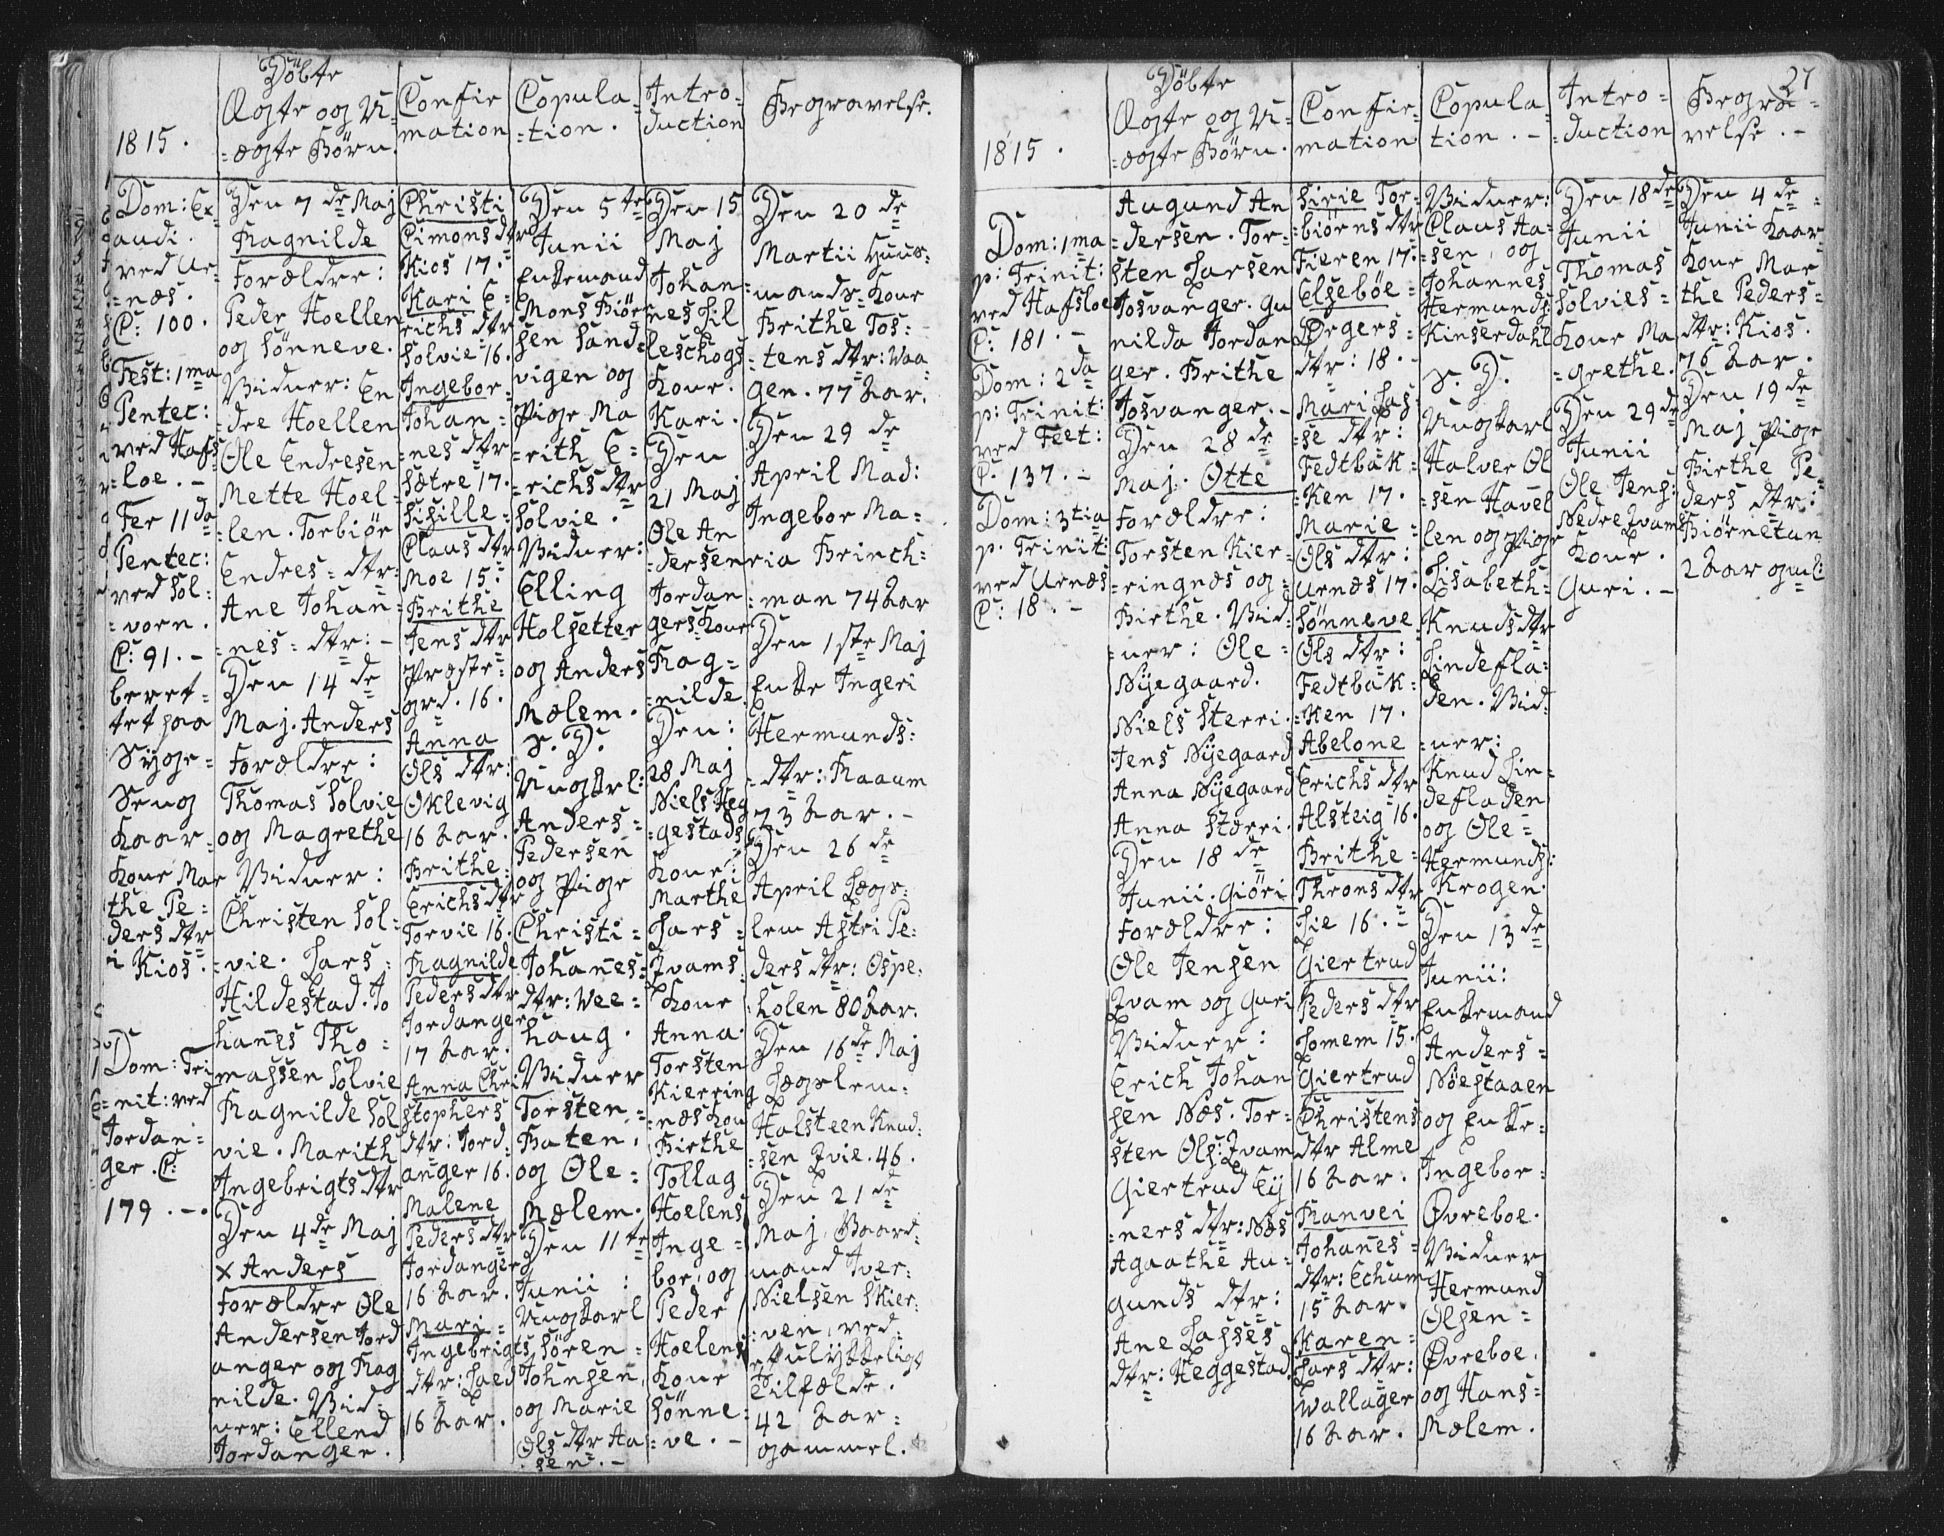 1815.
Dom: Ex
audi.
ved Ur-
=nes.
C: 100.
Fest: 1ma
Pentec:
ved Hafs
=loe. -
Fer 11da
Pentec:
ved Sol:
=vorn.
C: 91. -
beret-
tet paa
Syge-
Seng
Kaar-
Kone Mar
the Pe-
ders dtr
i Kios.
Dom: Tri
=nit: ved
Jordan-
ger. C:
179. -
Döbte
Ægte og U-
=ægte Börn.
Den 7de Maj
Ragnilde
Forældre:
Peder Hoellen
og Sönneve.
Vidner: En
dre Hoellen
Ole Endresen
Mette Hoel-
len. Torbiör
Endres= dtr:
Ane Johan-
nes= dtr: -
Den 14de
Maj. Anders
Forældre:
Thomas Solvie
og Magrethe
Vidner:
Christen Sol-
=vie. Lars=
Hildestad. Jo
hanes Tho=
massen Solvie
Ragnilde Sol
vie. Marith
Ingebrigts dtr
Den 4de Maj
x Anders
Forældre Ole
Andersen Jord
anger og Rag
nilde. Vid-
ner: Ellend
Jordanger.
Confir
mation
Christi
Simons dtr
Kios 17.
Kari E-
richs dtr
Solvie 16.
Ingebor-
Johan-
=nes dtr
Sætre 17.
Sisille
Claus dtr
Moe 15.
Brithe
Jens dtr
Præste-
grd. 16.
Anna
Ols dtr:
Oklevig
16 Aar.
Brithe
Erichs dtr
Torvie 16.
Ragnilde
Peders dtr
Jordanger
17 Aar.
Anna Chri
stophers
dtr: Jord
anger 16.
Malene
Peders dtr
Jordanger
16 Aar.
Mari-
Ingebrigts
dtr: Laed
16 Aar.
Copula-
=tion.
Den 5te
Junii
Enkemand
Mons Biör
sen Sand
vigen og
Pige Ma
=rith E-
=richs dtr
Solvie.
Vidner:
Elling
Holsetter
og Anders
Mælem.
S. D.
Ungkrl:
Anders=
Pedersen
og Pige
Christi=
Johanes=
dtr: Vee=
haug.
Vidner
Torsten=
Baten.
og Ole=
Mælem.
Den 11te
Junii:
Ungkarl
Sören=
Johnsen,
og Marie
Ols dtr Aa
sen. -
Intro-
duction
Den 15
Maj
Johan-
nes Lil
leschogs
Kone.
Kari.
Den
21 Maj
Ole An
dersen
Jordan
gers Kone
Rag=
=nilde
Den:
28 Maj
Niels Heg
=gestads
Kone:
Marthe
Lars=
Qvams
Kone
Anna.
Torsten
Kierring
næs Kon
Birthe
Tollag
Hoelens
Inge=
bor, og
Peder
Hoelens
Kone
Sönne=
=ve. -
Begravelse.
Den 20de
Martii Huus-
=mands= Kone
Brithe Tos-
=tens dtr: Waa
gen. 77 Aar.
Den 29de
April Mad:
Ingebor Ma-
ria Brinch-
=man 74 Aar
Den 1ste Maj
Enke Ingeri
Hermunds-
=dtr: Raaum
73 Aar. -
Den 26de
April Lægs-
lem Astri Pe-
ders dtr: Ospe-
holen 80 Aar.
Den 16de Maj
Lægslem=
Halsteen Knud-
=sen Qvie. 46.
Den 21de
Maj. Gaard-
mand Iver-
Nielsen Skier-
=ven, ved-
et ulykkeligt
Tilfælde.
42 Aar-
gammel.
27
1815.
Dom: 1ma
p: Trinit:
ved Hafsloe
C: 181. -
Dom: 2da
p: Trinit:
ved Feet:
C: 137. -
Dom: 3tia
p. Trinit:
ved Urnæs
C: 18. -
Döbte
Ægte og U-
=ægte Börn.
Augund An
=dersen. Tor-
sten Larsen
Josvanger. Gu
nilda Jordan
ger. Brithe
Josvanger. -
Den 28de
Maj. Otte
Forældre:
Torsten Kier-
=ringnæs og=
Birthe. Vid-
=ner: Ole=
Nyegaard.
Niels Sterri.
Jens Nyegaard
Anna Nyegaard
Anna Stærri.
Den 18de
Junii. Giöri
Forældre:
Ole Jensen
Qvam og Guri
Vidner:
Erich Johan
sen Næs. Tor-
sten Ols: Qvam
Giertrud Ey
=ners dtr: Næs
Agaathe Au-
gunds dtr:
Ane Lasses
dtr: Heggestad
Confir-
mation
Sirie Tor-
=biörns dtr
Fieren 17.
Elseböe-
Börgers=
dtr: 18. -
Mari Las-
=se dtr:
Fedtbak-
=ken 17.
Marie-
Ols dtr:
Urnæs 17.
Sönneve
Ols dtr:
Fedtbak-
=ken 17.
Abelone
Erichs dtr
Alsteig 16.
Brithe=
Throns dtr
Lie 16. -
Giertrud
Peders dtr
Lomem 15.
Giertrud
Christens
dtr Alme
16 Aar.
Ranvei
Johanes=
dtr: Echum
15 Aar.
Karen=
Lars dtr:
Wallager
16 Aar.
Copula
tion. -
Vidner:
Claus Aa-
=sen, og
Johannes
Hermunds
Kinserdahl
S. D.
Ungkarl
Halver Ol
sen Havel
len og Pige
Lisabeth=
Knuds dtr
Lindefla-
den. Vid-
=ner:
Knud Lin-
defladen
og Ole=
Hermunds:
Krogen.
Den 13de
Junii:
Enkemand
Anders=
Nöestaaen
og Enke-
Ingebor=
Øvreboe.
Vidner
Hermund
Olsen=
Øvreboe.
og Hans=
Mælem.
Intro-
=duction
Den 18de
Junii
Thomas
Solvies=
Kone Ma
=grethe.
Den 29de
Junii
Ole Jens:
Nedre Qvams
Kone.
Guri. -
Begra-
velse. -
Den 4de
Junii Kaar-
Kone Mar-
the Peders=
dtr: Kios.
76 Aar.
Den 19de
Maj Pige
Birthe Pe-
ders dtr:
Biörnetun
2 Aar gml: